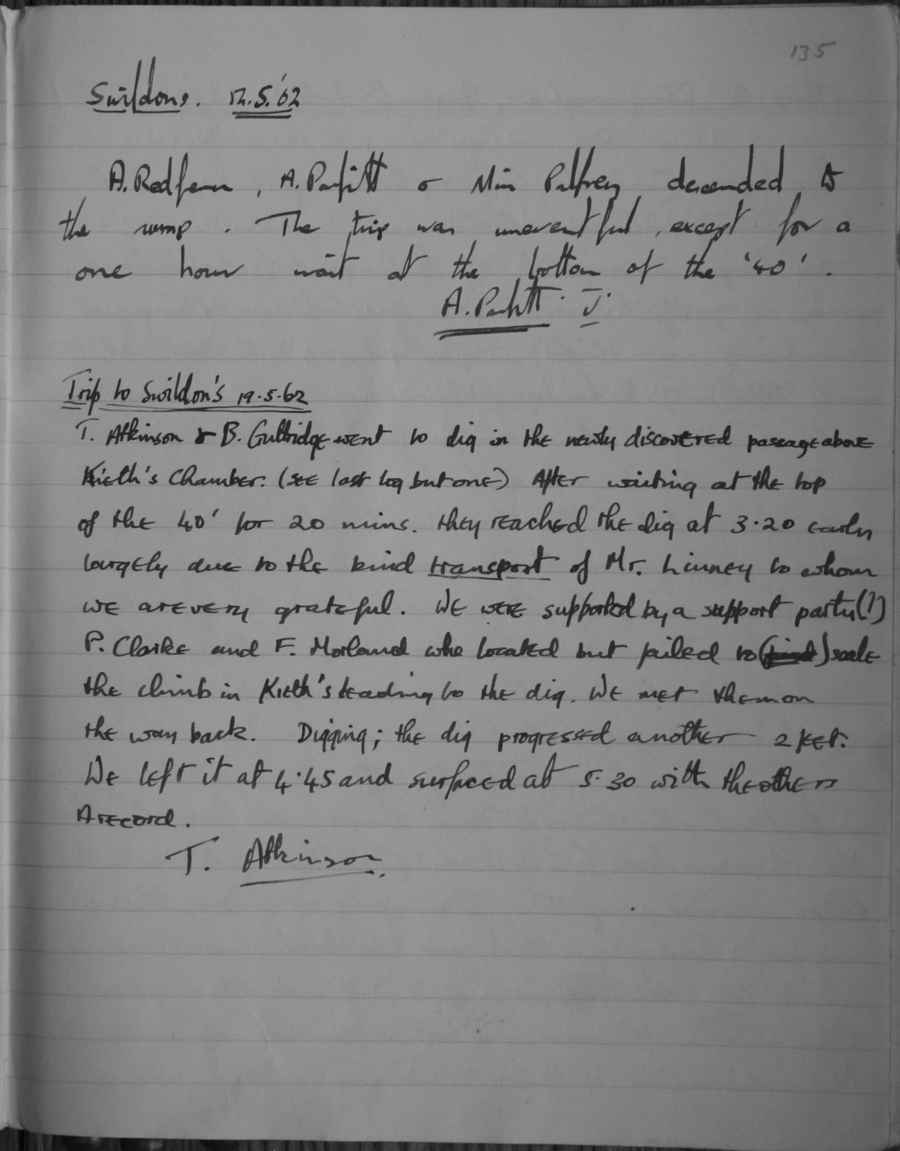 135
Swildons. 12.5.'62
A. Redfern, A. Parfitt & Miss Palfrey descended to
the sump. The trip was uneventful, except for a
one hour wait at the bottom of the '40'.
A. Parfitt. J.
Trip to Swildon's 19.5.62
T. Atkinson & B. Guttridge went to dig in the newly discovered passage above
Kieth's Chamber. (see last log but one) After waiting at the top
of the 40' for 20 mins. they reached the dig at 3.20 early
largely due to the kind transport of Mr. Linney to whom
we are very grateful. We were supported by a support party (!)
P. Clarke and F. Morland who located but failed to () scale
the climb in Kieth's leading to the dig. We met them on
the way back. Digging; the dig progressed another 2 feet.
We left it at 4.45 and surfaced at 5.30 with the others
A record.
T. Atkinson.